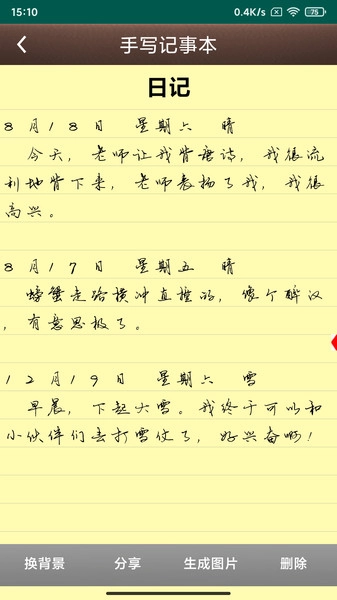 15:10 0.4K/s 75
手写记事本
日记
8月18日 星期六 晴
今天，老师让我背唐诗，我很流
利地背下来，老师表扬了我，我很
高兴。
8月17日 星期五 晴
螃蟹走路横冲直撞的，像个醉汉
，有意思极了。
12月19日 星期六 雪
早晨，下起大雪。我终于可以和
小伙伴们去打雪仗了，好兴奋啊！
换背景 分享 生成图片 删除